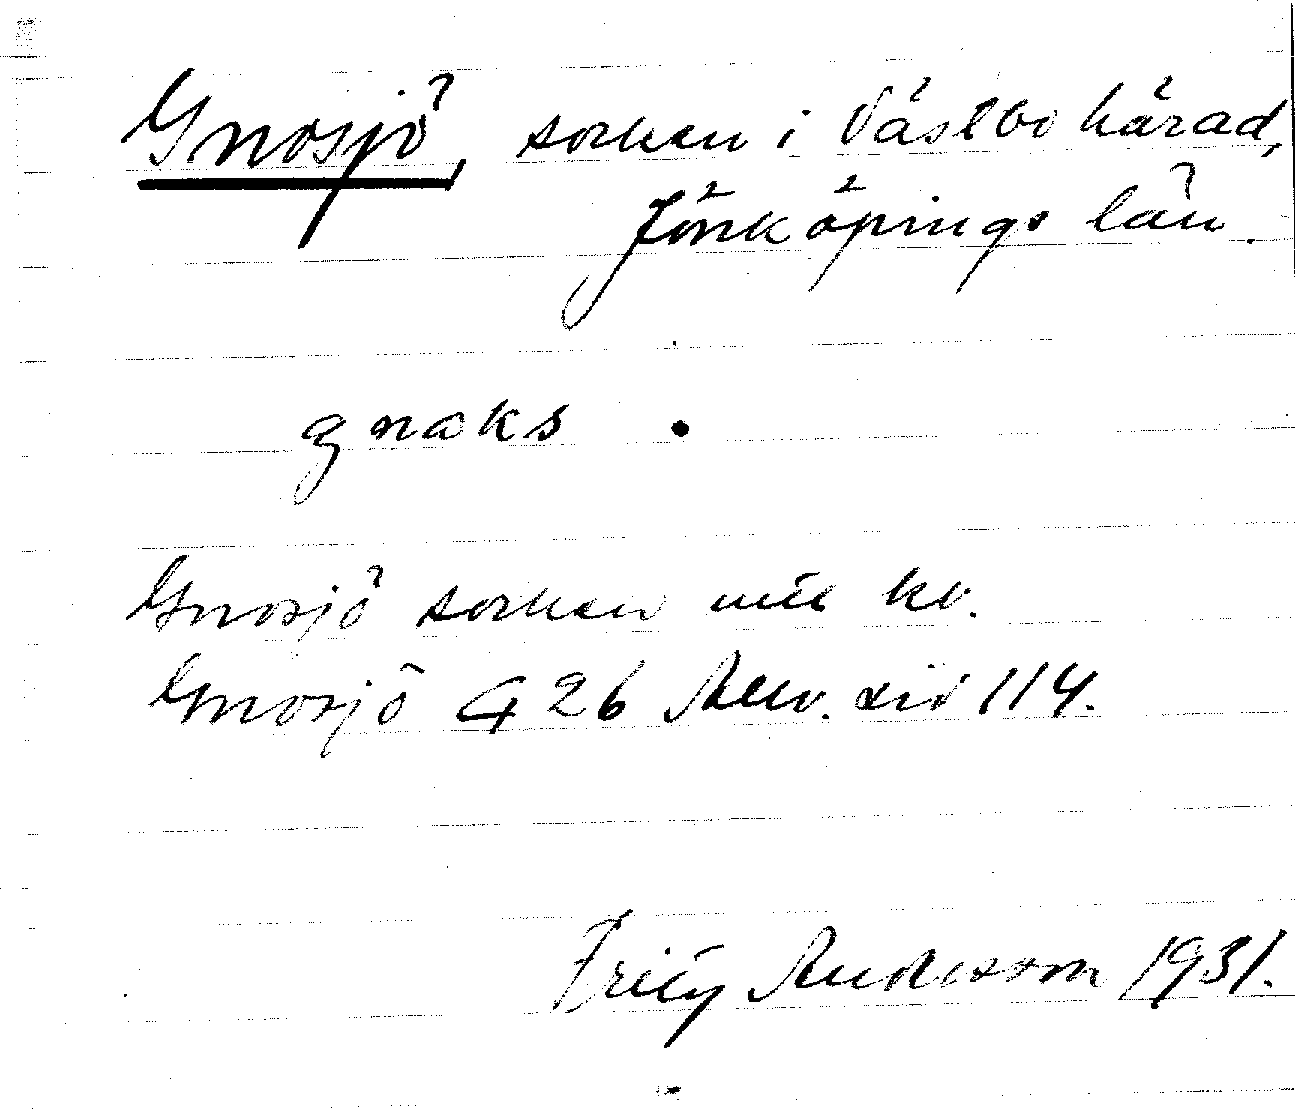 Gnosjö, socken i Västbo härad,
Jönköpings län.
gnaks
Gnosjö socken mtl kv.
Gnosjö G 26 Anv. sid 114.
Fritz Andersson 1931.